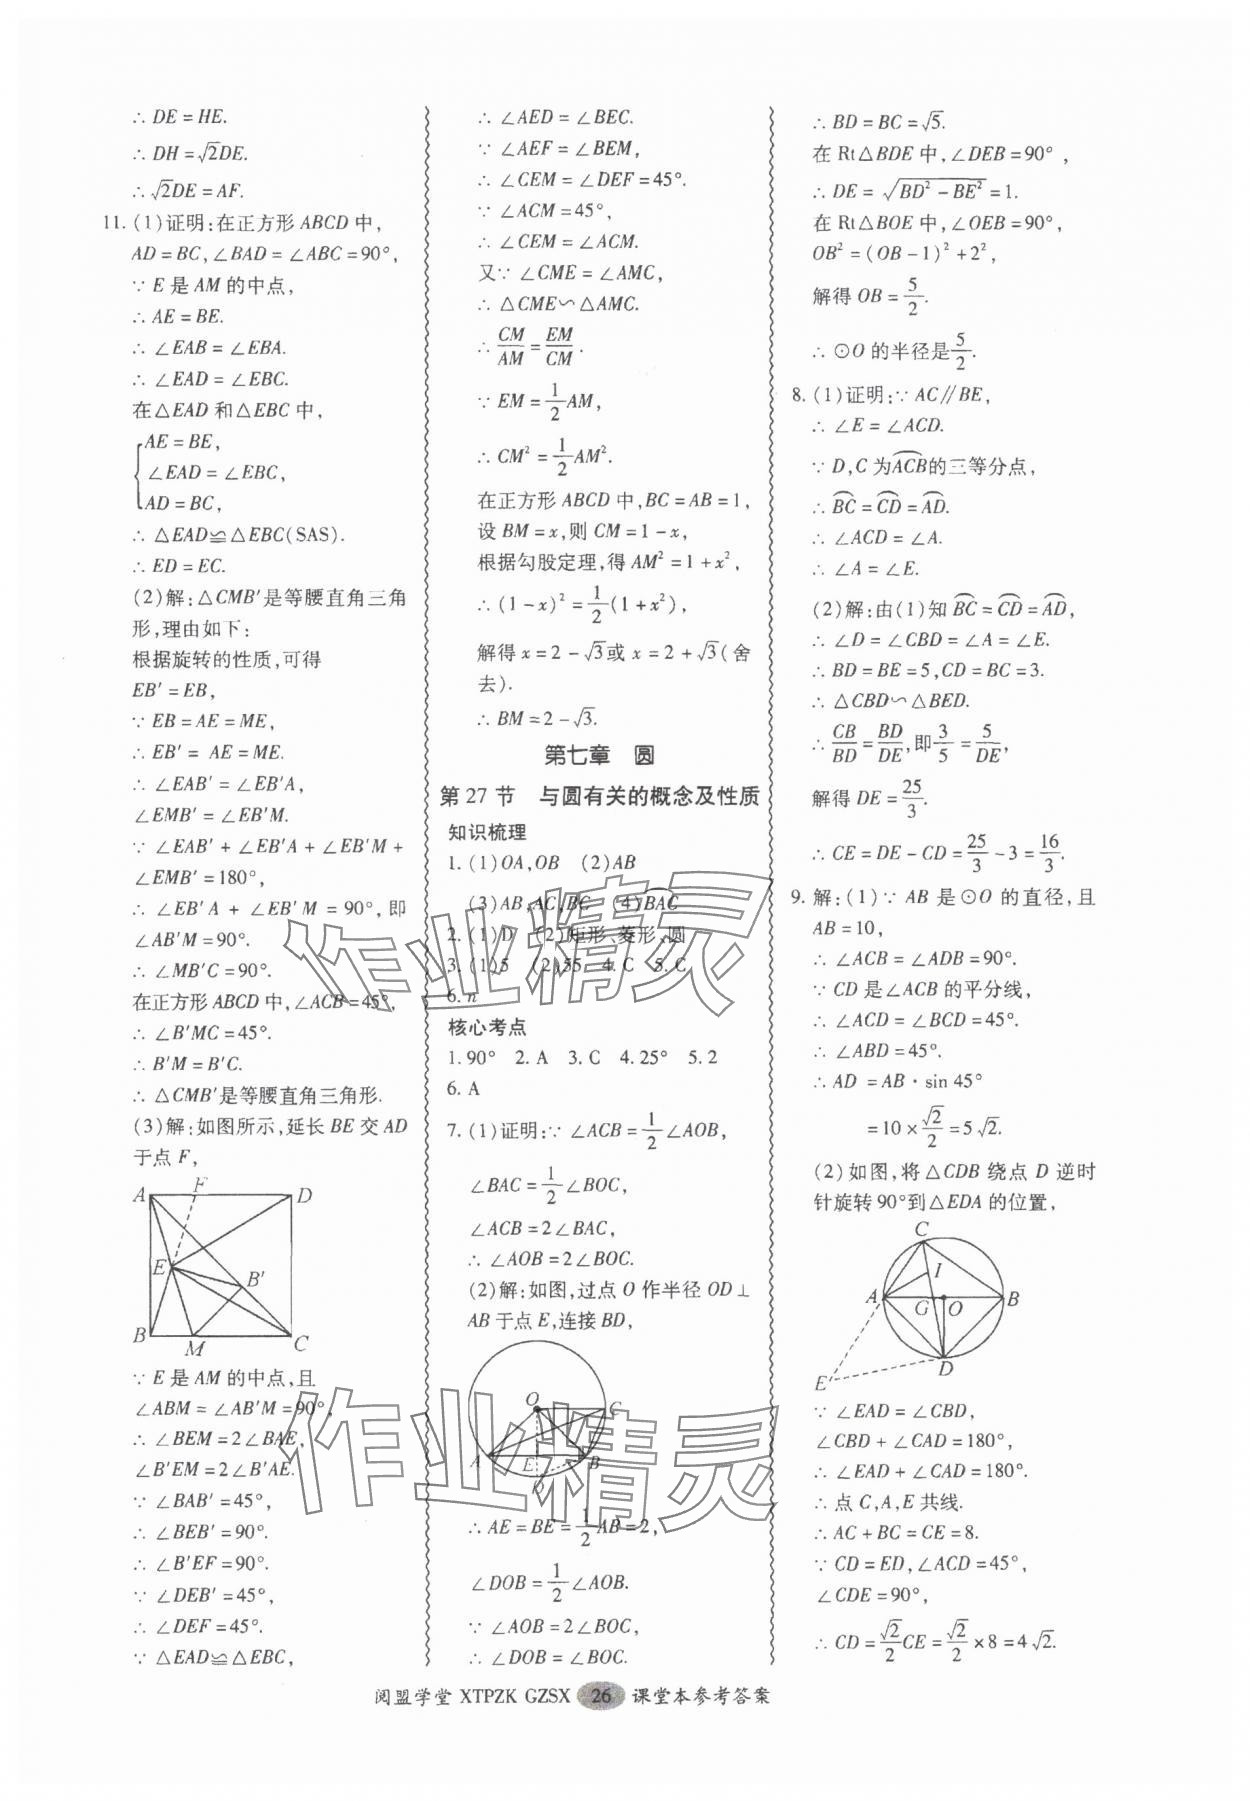 ∴ DE = HE.
∴ DH = √2DE.
∴ √2DE = AF.
11. (1)证明:在正方形 ABCD 中,
AD = BC, ∠BAD = ∠ABC = 90°,
∵ E 是 AM 的中点,
∴ AE = BE.
∴ ∠EAB = ∠EBA.
∴ ∠EAD = ∠EBC.
在△EAD 和△EBC 中,
AE = BE,
∠EAD = ∠EBC,
AD = BC,
∴ △EAD≌△EBC(SAS).
∴ ED = EC.
(2)解:△CMB′是等腰直角三角
形,理由如下:
根据旋转的性质,可得
EB′ = EB,
∵ EB = AE = ME,
∴ EB′ = AE = ME.
∴ ∠EAB′ = ∠EB′A,
∠EMB′ = ∠EB′M.
∵ ∠EAB′ + ∠EB′A + ∠EB′M +
∠EMB′ = 180°,
∴ ∠EB′A + ∠EB′M = 90°,即
∠AB′M = 90°.
∴ ∠MB′C = 90°.
在正方形 ABCD 中,∠ACB = 45°,
∴ ∠B′MC = 45°.
∴ B′M = B′C.
∴ △CMB′是等腰直角三角形.
(3)解:如图所示,延长 BE 交 AD
于点 F,
A F D
E B′
B M C
∵ E 是 AM 的中点,且
∠ABM = ∠AB′M = 90°,
∴ ∠BEM = 2∠BAE,
∠B′EM = 2∠B′AE.
∵ ∠BAB′ = 45°,
∴ ∠BEB′ = 90°.
∴ ∠B′EF = 90°.
∵ ∠DEB′ = 45°,
∴ ∠DEF = 45°.
∵ △EAD≌△EBC,
∴ ∠AED = ∠BEC.
∵ ∠AEF = ∠BEM,
∴ ∠CEM = ∠DEF = 45°.
∵ ∠ACM = 45°,
∴ ∠CEM = ∠ACM.
又∵ ∠CME = ∠AMC,
∴ △CME∽△AMC.
∴ CM/AM = EM/CM.
∵ EM = 1/2 AM,
∴ CM² = 1/2 AM².
在正方形 ABCD 中,BC = AB = 1,
设 BM = x,则 CM = 1 - x,
根据勾股定理,得 AM² = 1 + x²,
∴ (1 - x)² = 1/2(1 + x²),
解得 x = 2 - √3或 x = 2 + √3(舍
去).
∴ BM = 2 - √3.
第七章 圆
第 27 节 与圆有关的概念及性质
知识梳理
1. (1)OA,OB (2)AB
(3)AB,AC,BC (4)BAC
2. (1)D (2)矩形、菱形、圆
3. (1)5 (2)55 4. C 5. C
6. n
核心考点
1. 90° 2. A 3. C 4. 25° 5. 2
6. A
7. (1)证明:∵ ∠ACB = 1/2∠AOB,
∠BAC = 1/2∠BOC,
∠ACB = 2∠BAC,
∴ ∠AOB = 2∠BOC.
(2)解:如图,过点 O 作半径 OD⊥
AB 于点 E,连接 BD,
O C
A E B
D
∴ AE = BE = 1/2 AB = 2,
∠DOB = 1/2∠AOB.
∵ ∠AOB = 2∠BOC,
∴ ∠DOB = ∠BOC.
∴ BD = BC = √5.
在 Rt△BDE 中,∠DEB = 90°,
∴ DE = √(BD² - BE²) = 1.
在 Rt△BOE 中,∠OEB = 90°,
OB² = (OB - 1)² + 2²,
解得 OB = 5/2.
∴ ⊙O 的半径是5/2.
8. (1)证明:∵ AC∥BE,
∴ ∠E = ∠ACD.
∵ D,C 为ACB⌒的三等分点,
∴ BC⌒ = CD⌒ = AD⌒.
∴ ∠ACD = ∠A.
∴ ∠A = ∠E.
(2)解:由(1)知 BC⌒ = CD⌒ = AD⌒,
∴ ∠D = ∠CBD = ∠A = ∠E.
∴ BD = BE = 5, CD = BC = 3.
∴ △CBD∽△BED.
∴ CB/BD = BD/DE,即3/5 = 5/DE,
解得 DE = 25/3.
∴ CE = DE - CD = 25/3 - 3 = 16/3.
9. 解:(1)∵ AB 是⊙O 的直径,且
AB = 10,
∴ ∠ACB = ∠ADB = 90°.
∵ CD 是∠ACB 的平分线,
∴ ∠ACD = ∠BCD = 45°.
∴ ∠ABD = 45°.
∴ AD = AB · sin 45°
= 10 × √2/2 = 5√2.
(2)如图,将△CDB 绕点 D 逆时
针旋转 90°到△EDA 的位置,
C
I
A G O B
E D
∵ ∠EAD = ∠CBD,
∠CBD + ∠CAD = 180°,
∴ ∠EAD + ∠CAD = 180°.
∴ 点 C,A,E 共线.
∴ AC + BC = CE = 8.
∵ CD = ED, ∠ACD = 45°,
∠CDE = 90°,
∴ CD = √2/2 CE = √2/2 × 8 = 4√2.
阅盟学堂 XTPZK GZSX 26 课堂本参考答案
作业精灵
作业精灵